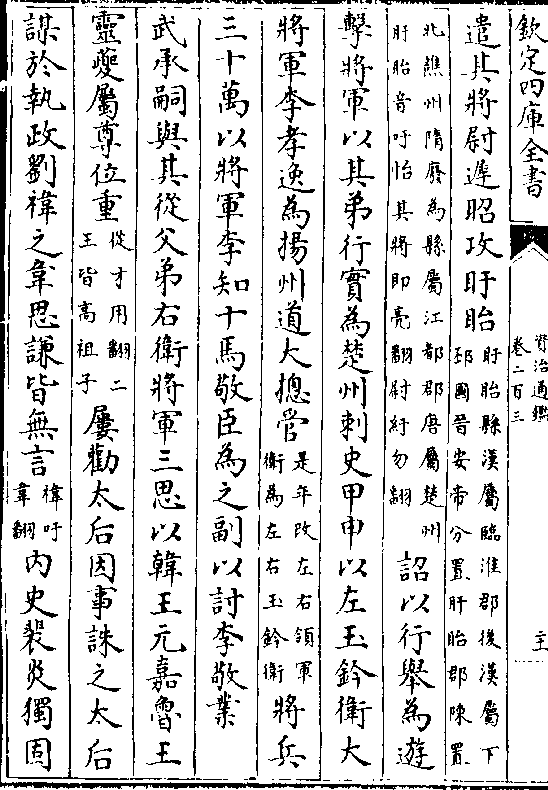 欽定四庫全書
資治通鑑
卷二百三
遣其將尉遲昭攻盱眙盱眙縣漢屬臨淮郡後漢屬下
邳國晉安帝分置盱眙郡陳置
北譙州隋廢為縣屬江都郡唐屬楚州
盱眙音吁怡其將即亮翻尉紆勿翻詔以行舉為遊
擊將軍以其弟行實為楚州刺史甲申以左玉鈐衛大
將軍李孝逸為揚州道大總管是年改左右領軍
衛為左右玉鈐衛將兵
三十萬以將軍李知十馬敬臣為之副以討李敬業
武承嗣與其從父弟右衛將軍三思以韓王元嘉魯王
靈夔屬尊位重從才用翻二
王皆高祖子屢勸太后因事誅之太后
謀於執政劉禕之韋思謙皆無言禕吁
韋翻內史裴炎獨固